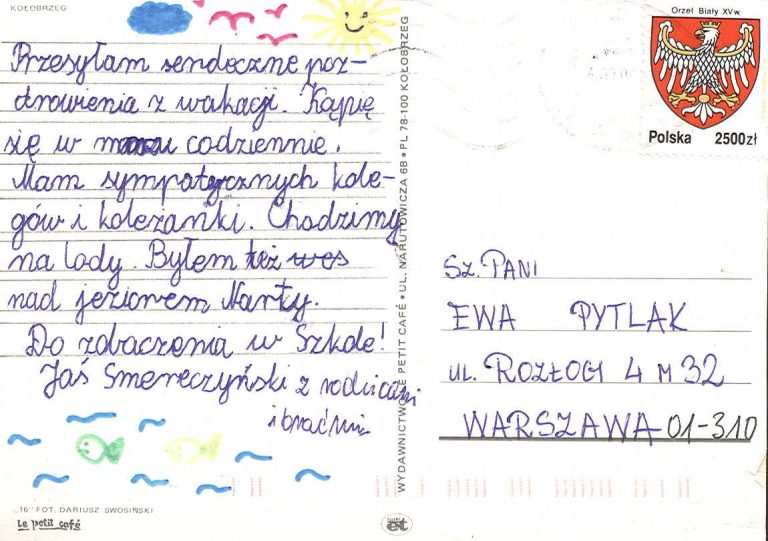 KOŁOBRZEG
Przesyłam serdeczne poz-
drowienia z wakacji. Kąpię
się w morzu codziennie.
Mam sympatycznych kole-
gów i koleżanki. Chodzimy
na lody. Byłem też wes
nad jeziorem Narty.
Do zobaczenia w Szkole!
Jaś Smereczyński z rodzicami
i braćmi
„16" FOT. DARIUSZ SWOSIŃSKI
Le petit café
WYDAWNICTWO LE PETIT CAFÉ • UL. NARUTOWICZA 6B • PL 78-100 KOŁOBRZEG
Orzeł Biały XVw.
Polska 2500zł
SZ. PANI
EWA PYTLAK
UL. ROZŁOGI 4 M 32
WARSZAWA 01-310